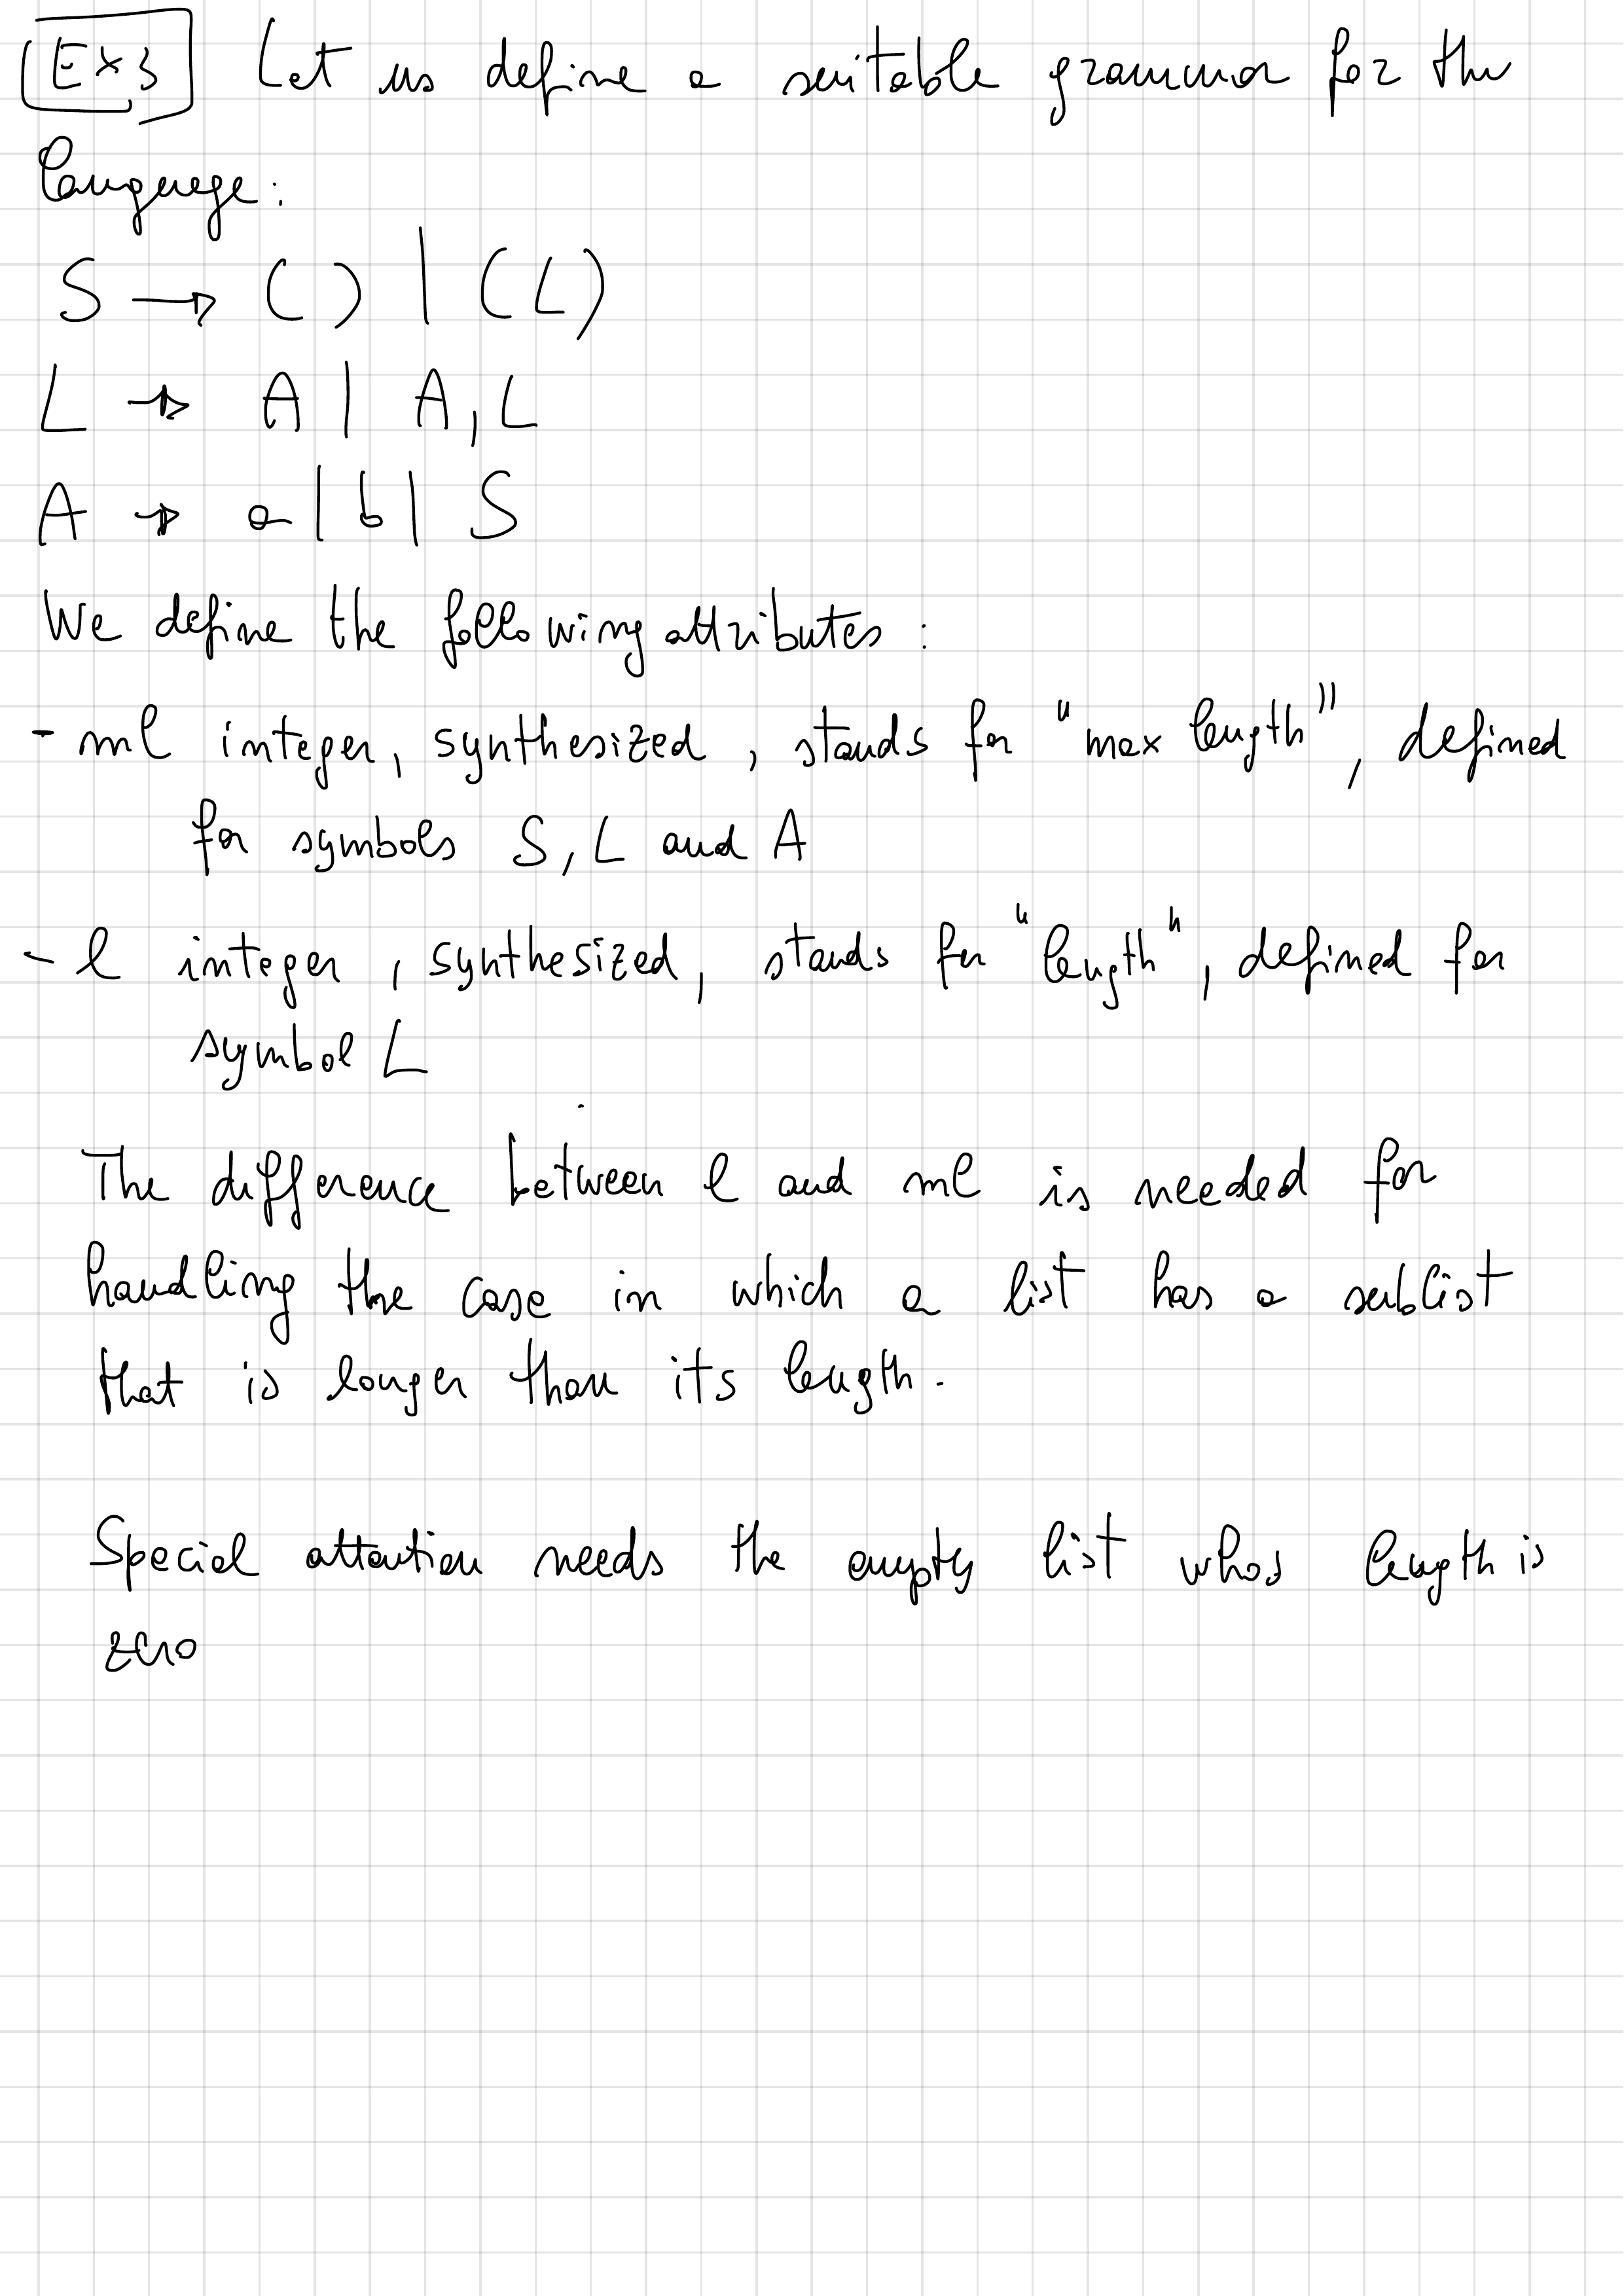 Ex3 Let us define a suitable grammar for the
language:
S → ( ) | (L)
L → A | A, L
A → a | b | S
We define the following attributes:
- ml integer, synthesized, stands for "max length", defined
for symbols S, L and A
- l integer, synthesized, stands for "length", defined for
symbol L
The difference between l and ml is needed for
handling the case in which a list has a sublist
that is longer than its length.
Special attention needs the empty list whos length is
zero